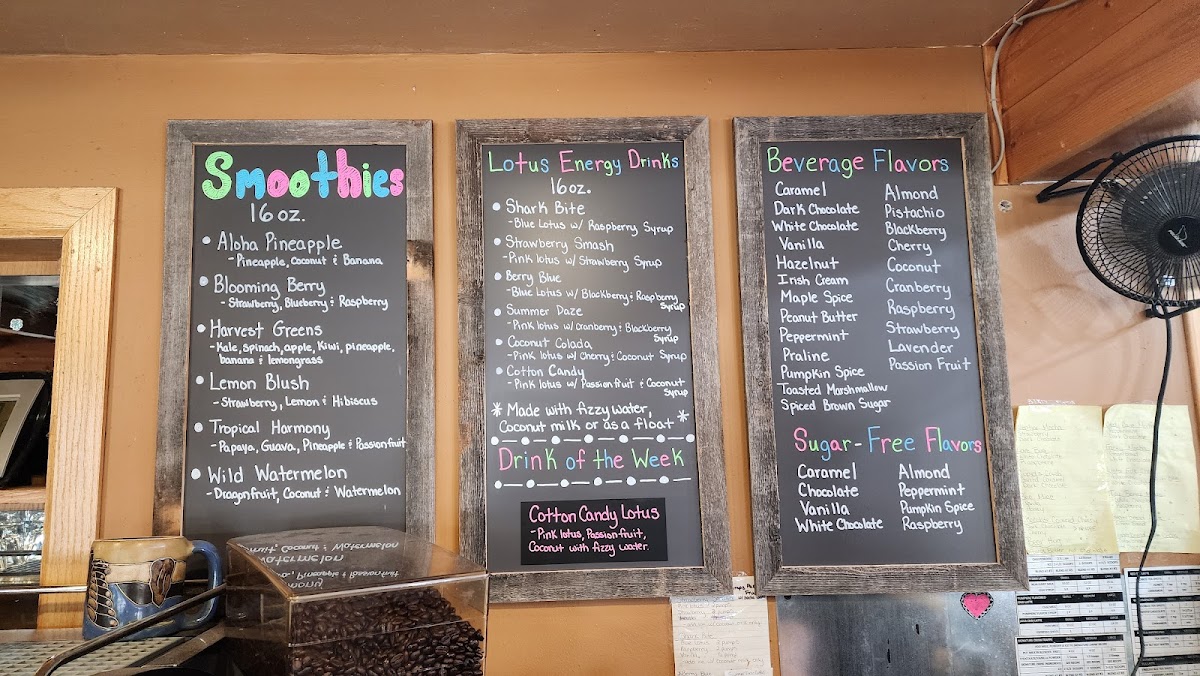 Smoothies
16 oz.
• Aloha Pineapple
- Pineapple, Coconut & Banana
• Blooming Berry
- Strawberry, Blueberry & Raspberry
• Harvest Greens
- Kale, spinach, apple, Kiwi, pineapple,
banana & lemongrass
• Lemon Blush
- Strawberry, Lemon & Hibiscus
• Tropical Harmony
- Papaya, Guava, Pineapple & Passionfruit
• Wild Watermelon
- Dragonfruit, Coconut & Watermelon
Lotus Energy Drinks
16 oz.
• Shark Bite
- Blue Lotus w/ Raspberry Syrup
• Strawberry Smash
- Pink lotus w/ Strawberry Syrup
• Berry Blue
- Blue Lotus w/ Blackberry & Raspberry
Syrup
• Summer Daze
- Pink lotus w/ Cranberry & Blackberry
Syrup
• Coconut Colada
- Pink lotus w/ Cherry & Coconut Syrup
• Cotton Candy
- Pink lotus w/ Passionfruit & Coconut
Syrup
* Made with fizzy water,
Coconut milk or as a float *
Drink of the Week
Cotton Candy Lotus
- Pink lotus, Passionfruit,
Coconut with fizzy water.
Beverage Flavors
Caramel
Dark Chocolate
White Chocolate
Vanilla
Hazelnut
Irish Cream
Maple Spice
Peanut Butter
Peppermint
Praline
Pumpkin Spice
Toasted Marshmallow
Spiced Brown Sugar
Almond
Pistachio
Blackberry
Cherry
Coconut
Cranberry
Raspberry
Strawberry
Lavender
Passion Fruit
Sugar-Free Flavors
Caramel
Chocolate
Vanilla
White Chocolate
Almond
Peppermint
Pumpkin Spice
Raspberry